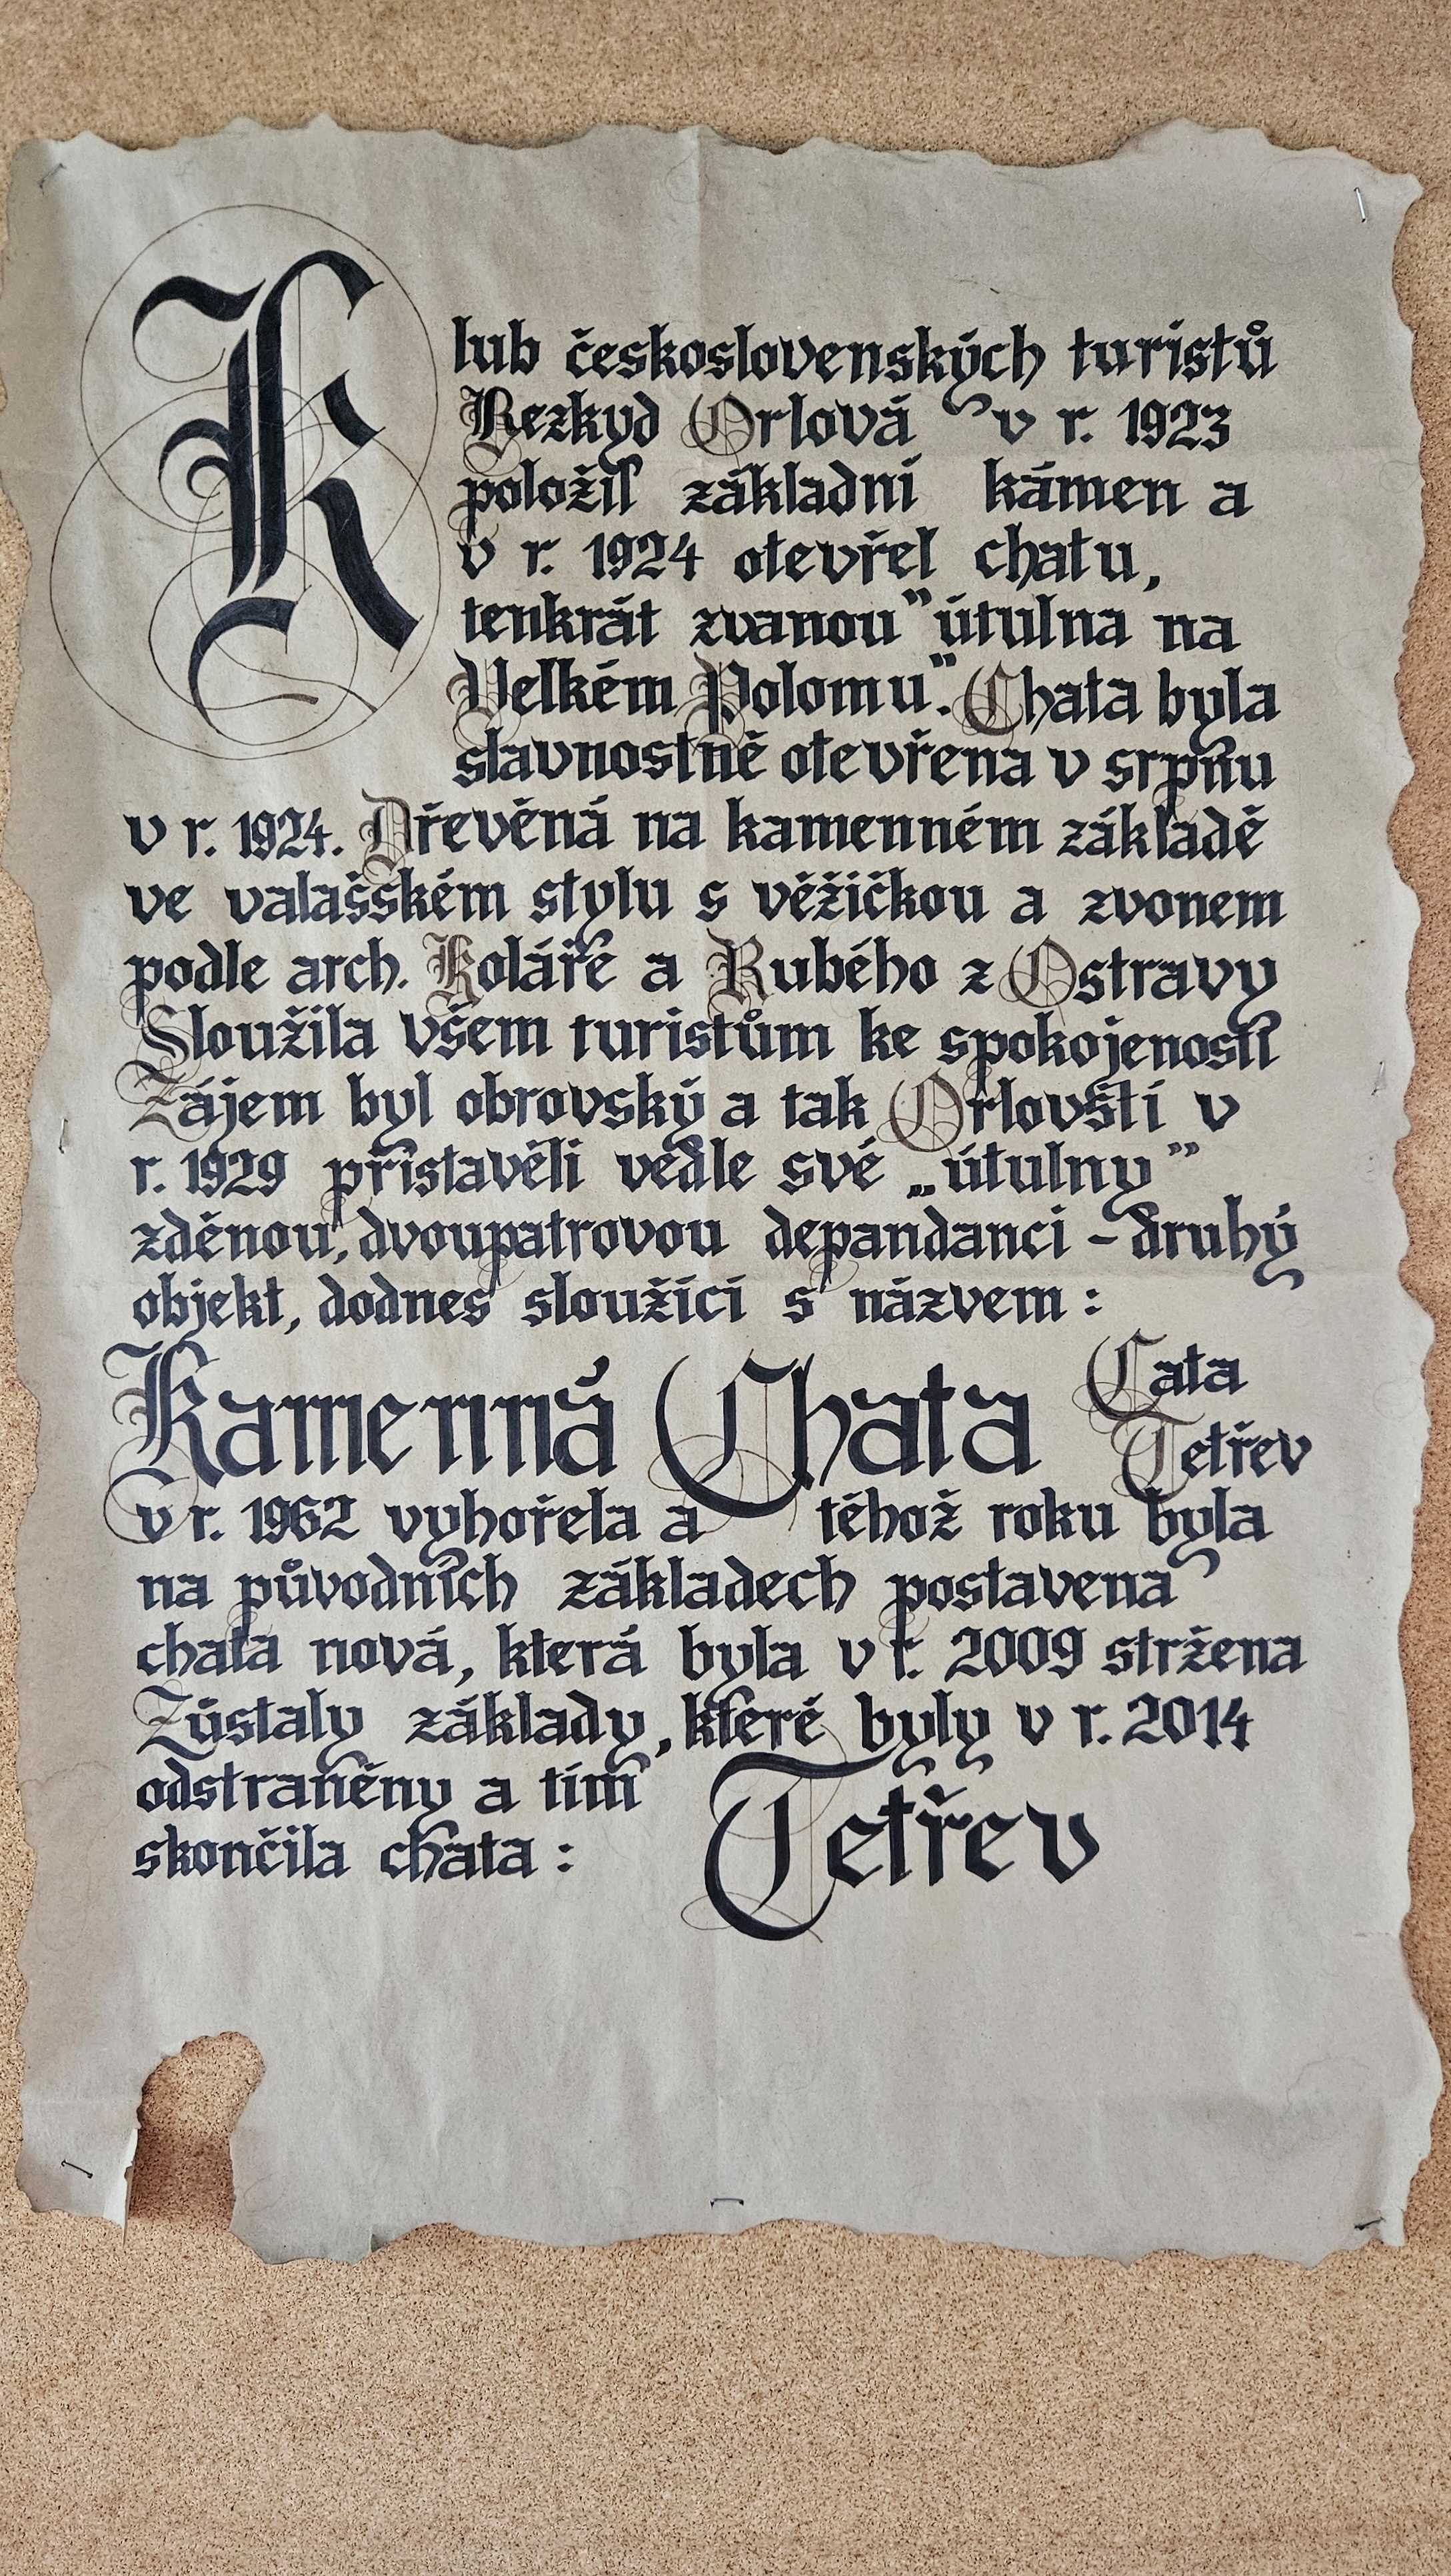 Klub československých turistů
Bezkyd Orlová v r. 1923
položil základní kámen a
v r. 1924 otevřel chatu,
tenkrát zvanou "útulna na
Velkém Polomu". Chata byla
slavnostně otevřena v srpnu
v r. 1924. Dřevěná na kamenném základě
ve valašském stylu s věžičkou a zvonem
podle arch. Koláře a Rubého z Ostravy
Sloužila všem turistům ke spokojenosti
Zájem byl obrovský a tak Orlovští v
r. 1929 přistavěli vedle své „útulny”
zděnou, dvoupatrovou depandanci - druhý
objekt, dodnes sloužící s názvem :
Kamenná Chata
Cata
Tetřev
v r. 1962 vyhořela a téhož roku byla
na původních základech postavena
chata nová, která byla v r. 2009 stržena
Zůstaly základy, které byly v r. 2014
odstraněny a tím
skončila chata : Tetřev